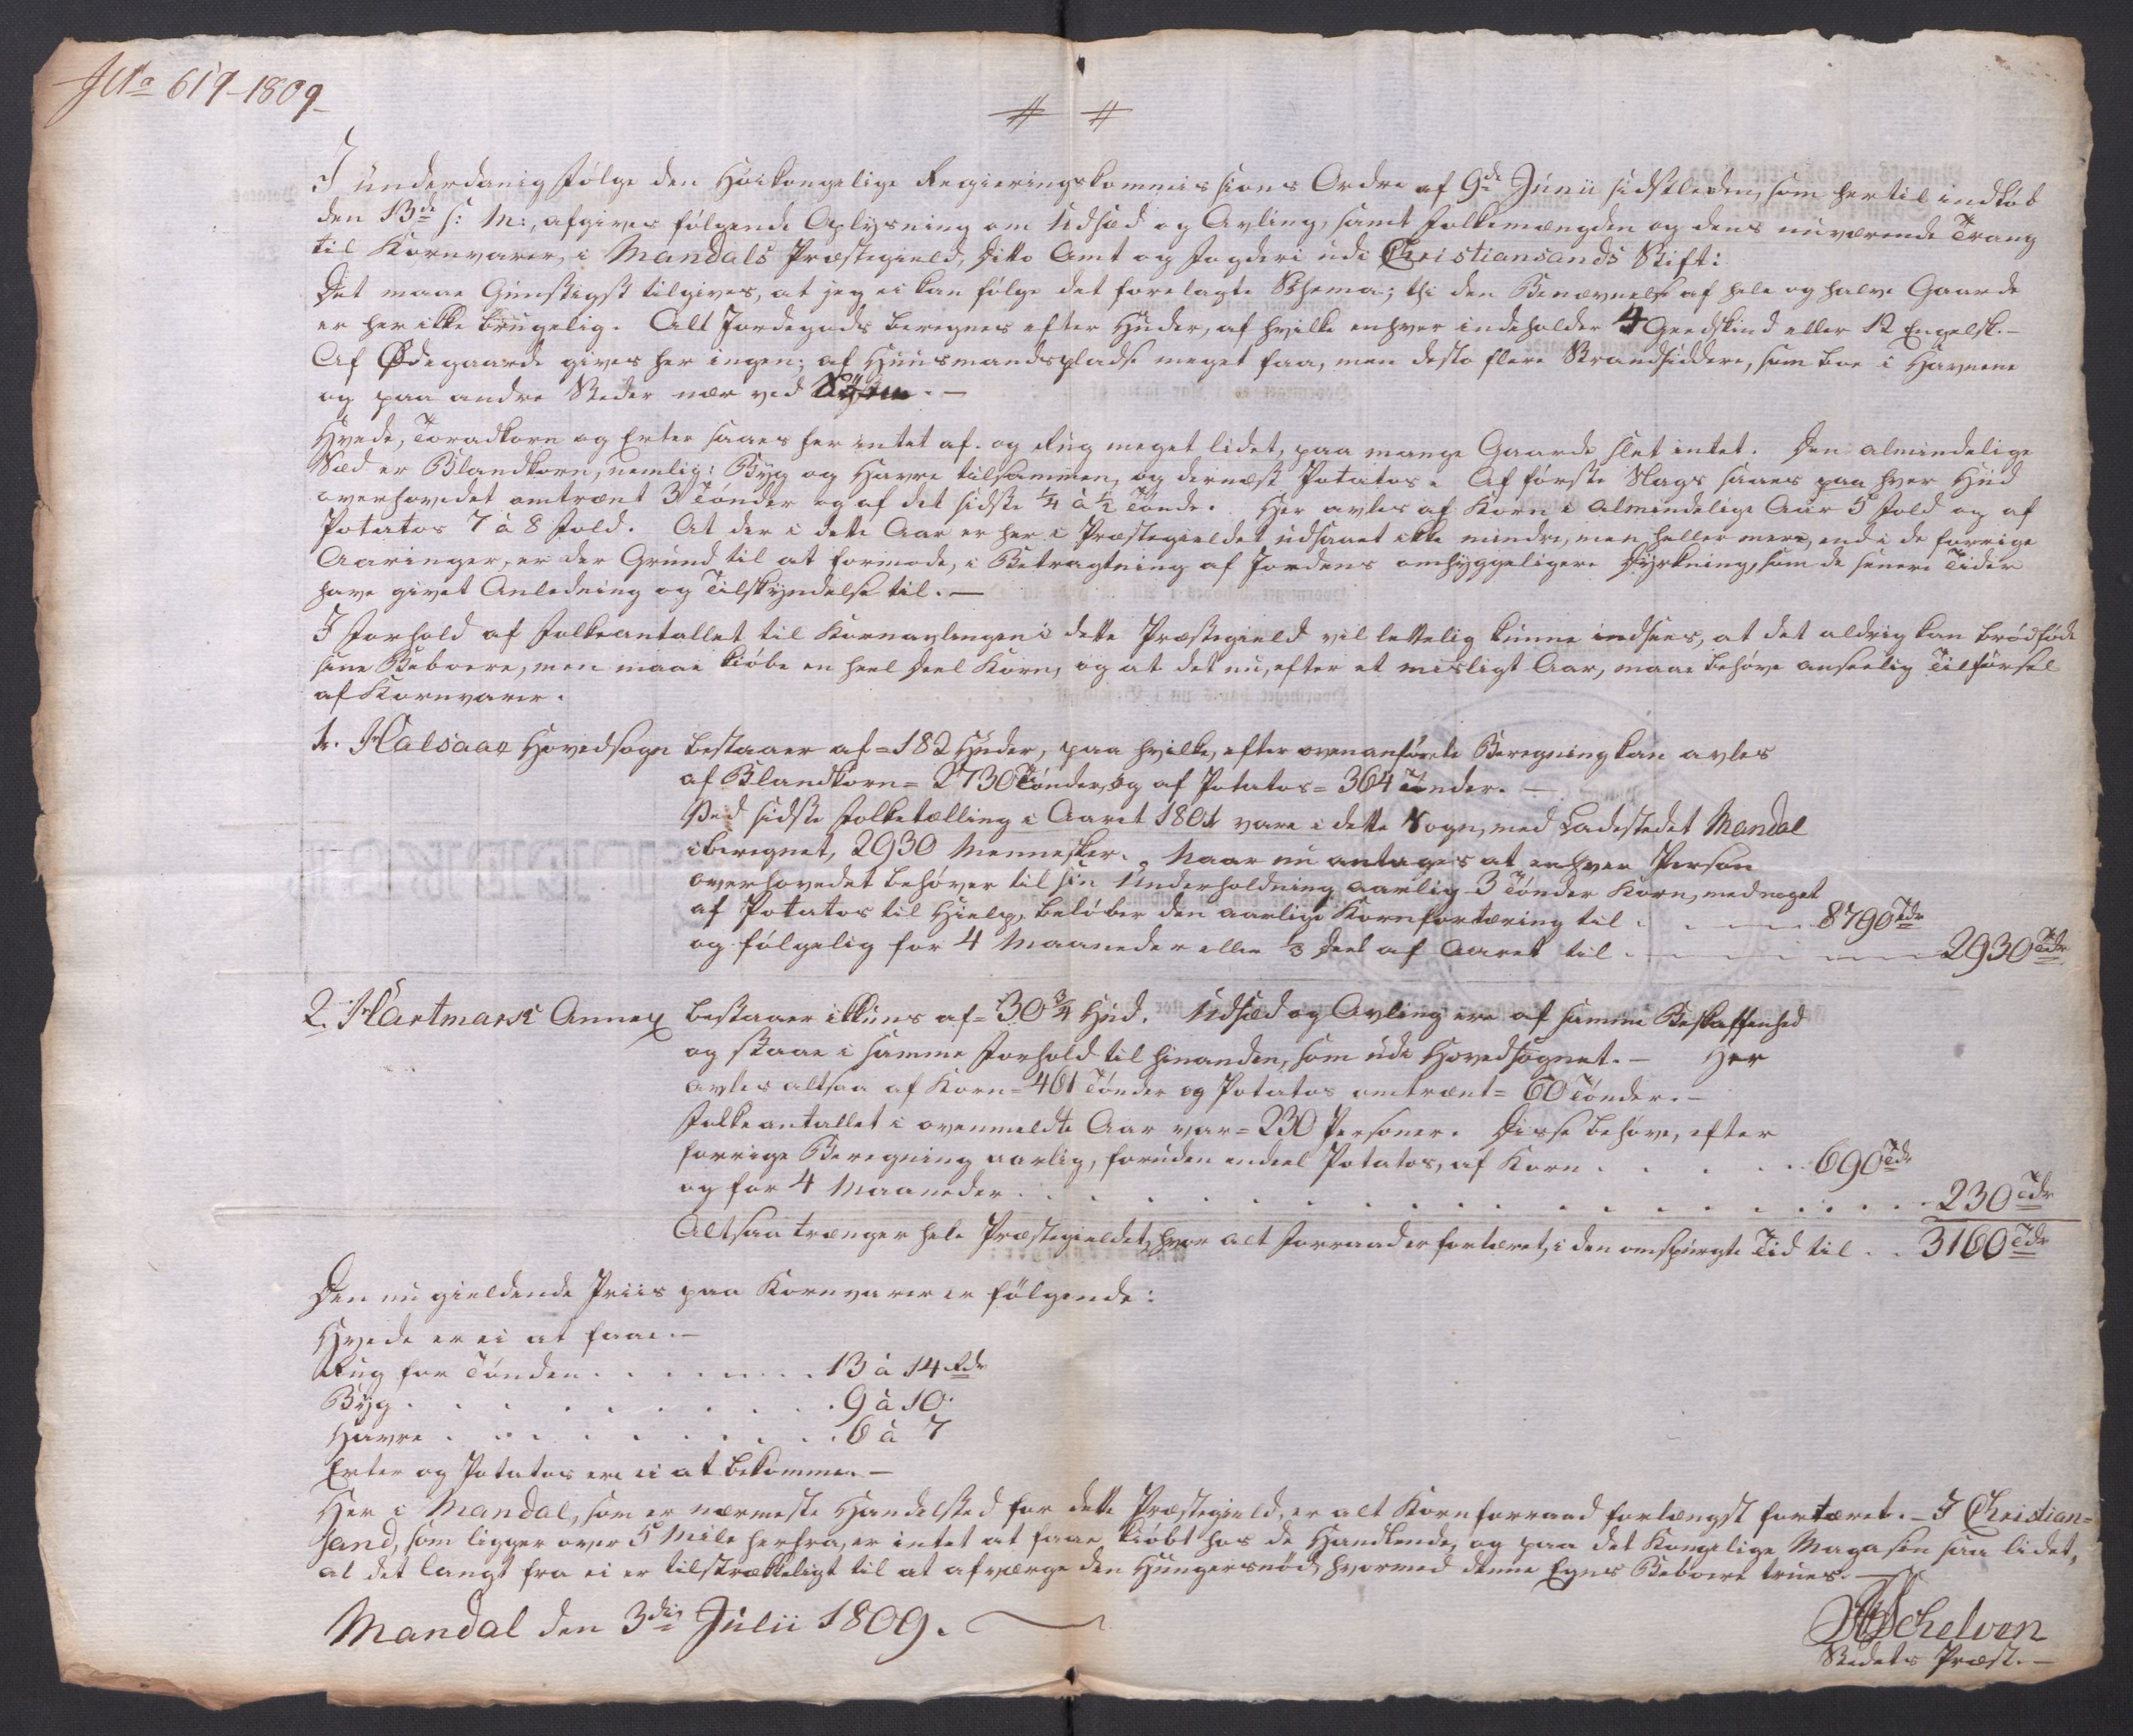 Jlla 617-1809
I underdanig Følge den Høikongelige Regieringskommissions Ordre af 9de Junii sidstleden, som hertil indløb
den 13de s: M:, afgives følgende Oplysning om Udsæd og Avling, samt Folkemængden og dens nuværende Trang
til Kornvarer, i Mandals Præstegield, Ditto Amt og Fogderi udi Christiansands Stift:
Det maae Gunstigst tilgives, at jeg ei kan følge det forelagte Schema; thi den Benævnelse af hele og halve Gaarde
er her ikke brugelig. Alt Jordegods beregnes efter Huder, af hvilke enhver indeholder 4 Geedskind eller 12 Engelsk.-
Af Ødegaarde gives her ingen; af Huusmandspladse meget faa, men desto flere Strandsiddere, som boe i Havnene
og paa andre Steder nær ved Søen.-
Hvede, Toradkorn og Erter saaes her intet af. og Rug meget lidet, paa mange Gaarde slet intet. Den almindelige
Sæd er Blandkorn, nemlig: Byg og Havre tilsammen, og dernæst Potatos. Af første Slags saaes paa hver Hud
overhovedet omtrænt 3 Tønder og af det sidste 1/4 à 1/2 Tønde. Her avles af Korn i almindelige Aar 5 Fold og af
Potatos 7 à 8 Fold. At der i dette Aar er her i Præstegieldet udsaaet ikke mindre, men heller mere, end i de forrige
Aaringer, er der Grund til at formode, i Betragtning af Jordens omhyggeligere Dyrkning, som de senere Tider
have givet Anledning og Tilskyndelse til.-
I Forhold af Folkeantallet til Kornavlingen i dette Præstegield vil lettelig kunne indsees, at det aldrig kan brødføde
sine Beboere, men maae kiøbe en heel Deel Korn, og at det nu, efter et misligt Aar, maae behøve anseelig Tilførsel
af Kornvarer.
1. Halsaae Hovedsogn bestaaer af = 182 Huder, paa hvilke, efter ovenanførte Beregning kan avles
af Blandkorn = 2730 Tønder, og af Potatos = 364 Tønder.-
Ved sidste Folketælling i Aaret 1801 vare i dette Sogn, med Ladestedet Mandal
iberegnet, 2930 Mennesker. Naar nu antages at enhver Person
overhovedet behøver til sin Underholdning aarlig 3 Tønder Korn, med noget
af Potatos til Hielp, beløber den aarlige Kornfortæring til . . 8790 Tdr
og følgelig for 4 Maaneder eller 1/3 Deel af Aaret til . . . . 2930 Tdr
2. Hartmark Annex bestaaer ikkuns af = 30 3/4 Hud. Udsæd og Avling ere af samme Beskaffenhed
og staae i samme Forhold til hinanden, som udi Hovedsognet.- Her
avles altsaa af Korn = 461 Tønder og Potatos omtrænt = 60 Tønder.-
Folkeantallet i ovenmeldte Aar var = 230 Personer. Disse behøve, efter
forrige Beregning aarlig, foruden endeel Potatos, af Korn . . . . . 690 Tdr
og for 4 Maaneder . . . . . . . . . . . . . 230 Tdr
Altsaa trænger hele Præstegieldet, hvor alt Forraad er fortæret, i den omspurgte Tid til . . 3160 Tdr
Den nu gieldende Priis paa Kornvarer er følgende:
Hvede er ei at faae.-
Rug for Tønden . . . . . . 13 à 14 Rdr
Byg . . . . . . . . . 9 à 10.
Havre . . . . . . . . . 6 à 7
Erter og Potatos ere ei at bekomme.-
Her i Mandal, som er nærmeste Handelsted for dette Præstegield, er alt Kornforraad forlængst fortæret.- I Christian=
sand, som ligger over 5 Mile herfra, er intet at faae kiøbt hos de Handlende, og paa det Kongelige Magasin saa lidet,
at det langt fra ei er tilstrækkeligt til at afværge den Hungersnød, hvormed denne Egns Beboere trues.-
Mandal den 3die Julii 1809.
Schelven
Stedets Præst.-